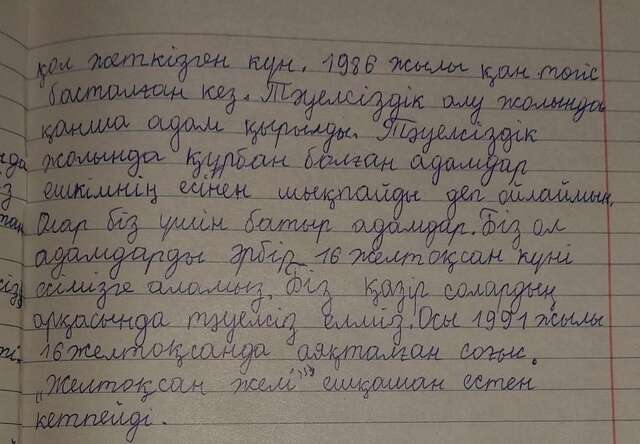 қол жеткізген күн. 1986 жылы қан төгіс
басталған кез. Тәуелсіздік алу жолында
қанша адам қырылды. Тәуелсіздік
жолында құрбан болған адамдар
ешкімнің есінен шықпайды деп ойлаймын.
Олар біз үшін батыр адамдар. Біз ол
адамдарды әрбір 16 желтоқсан күні
есімізге аламыз. Біз қазір солардың
арқасында тәуелсіз елміз. Осы 1991 жылы
16 желтоқсанда аяқталған соғыс.
„Желтоқсан желі" ешқашан естен
кетпейді.